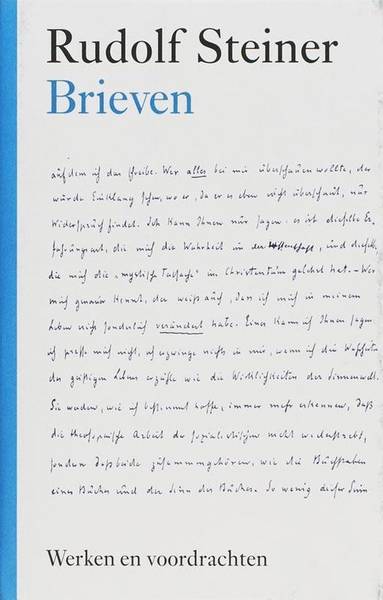 Rudolf Steiner
Brieven
auf dem ich das schreibe. Wer alles bei mir überschauen wollte, der
würde Einklang sehen, wo er, da er es eben nicht überschaut, nur
Widerspruch findet. Ich kann Ihnen nur sagen: es ist dieselbe Er-
fahrungsart, die mich die Wahrheit in der Wissenschaft, und dieselbe,
die mich die „mystische Tatsache" im Christentum gelehrt hat. – Wer
mich genauer kennt, der weiß auch, dass ich mich in meinem
Leben nicht sonderlich verändert habe. Eines kann ich Ihnen sagen:
ich presse mich nicht, ich zwinge nichts in mir, wenn ich die Wahrheiten
des geistigen Lebens erzähle wie die Wirklichkeiten der Sinnenwelt.
Sie werden, wie ich bestimmt hoffe, immer mehr erkennen, daß
die theosophische Arbeit der sozialistischen nicht widerstrebt,
sondern daß beide zusammengehören, wie die Buchstaben
eines Buches und der Sinn des Buches. So wenig dieser Sinn
Werken en voordrachten